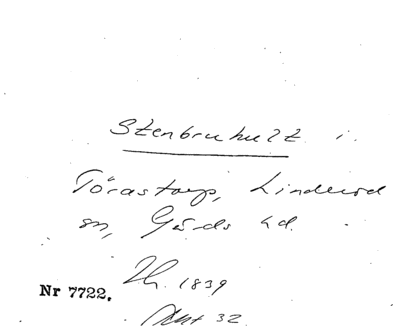 Stenbruhult i
Törastorp, Linderöd
sn, Gärds hd.
Nr 7722. Th. 1839
Akt 32